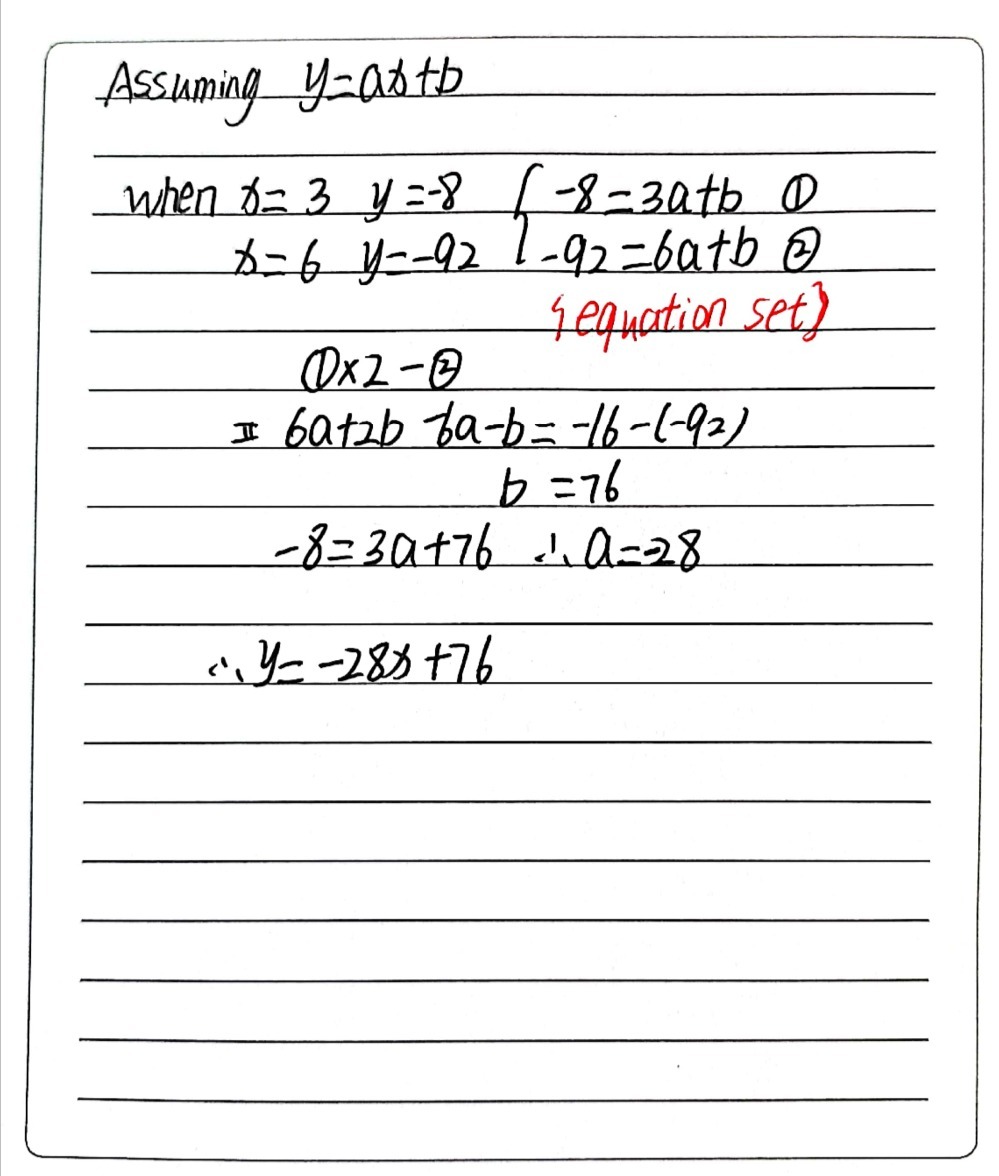 Assuming y=ax+b
when x=3 y=-8 { -8=3a+b ①
x=6 y=-92 -92=6a+b ②
{equation set}
①×2-②
= 6a+2b-6a-b=-16-(-92)
b=76
-8=3a+76 ∴a=-28
∴y=-28x+76